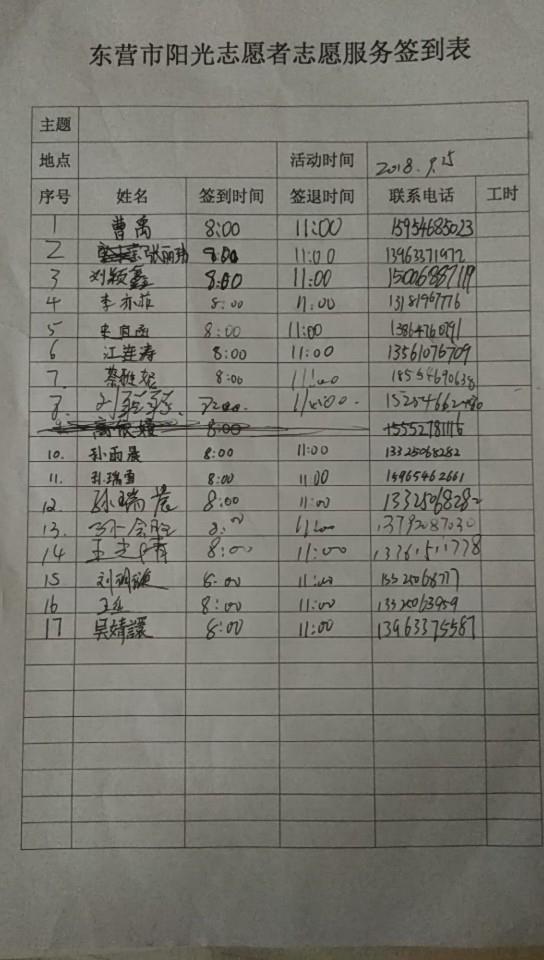 东营市阳光志愿者志愿服务签到表
主题
地点 活动时间 2018.9.15
序号 姓名 签到时间 签退时间 联系电话 工时
1 曹禹 8:00 11:00 15954685023
2 张丽 8:00 11:00 13963371972
3 刘颖鑫 8:00 11:00 15006887119
4 李亦菲 8:00 11:00 13181967776
5 8:00 11:00 13864760791
6 江连涛 8:00 11:00 13561076709
7. 蔡雅妮 8:00 11:00 18554690638
8. 刘 11:00
9. 8:00 15552781116
10. 孙雨晨 8:00 11:00 13325068282
11. 孙瑞雪 8:00 11:00 15965462661
12. 孙瑞晨 8:00 11:00 13325068282
13. 8:00 11:00 13792087030
14 王 8:00 11:00
15 刘 8:00 11:00
16 王 8:00 11:00 13325063959
17 吴婧譞 8:00 11:00 13963375587